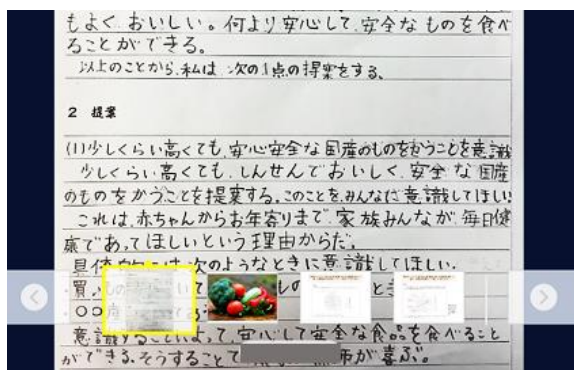 もよく、おいしい。何より安心して、安全なものを食べ
ることができる。
以上のことから、私は、次の1点の提案をする。
2 提案
(1)少しくらい高くても、安心安全な国産のものをかうことを意識
少しくらい高くても、しんせんでおいしく、安全な国産
のものをかうことを提案する。このことを、みんなに意識してほしい。
これは、赤ちゃんからお年寄りまで、家族みんなが、毎日健
康であってほしいという理由からだ。
は、次のようなときに意識してほしい。
買
〇〇産
意識することによって、安心して安全な食品を食べること
ができる。そうすることで 市が喜ぶ。